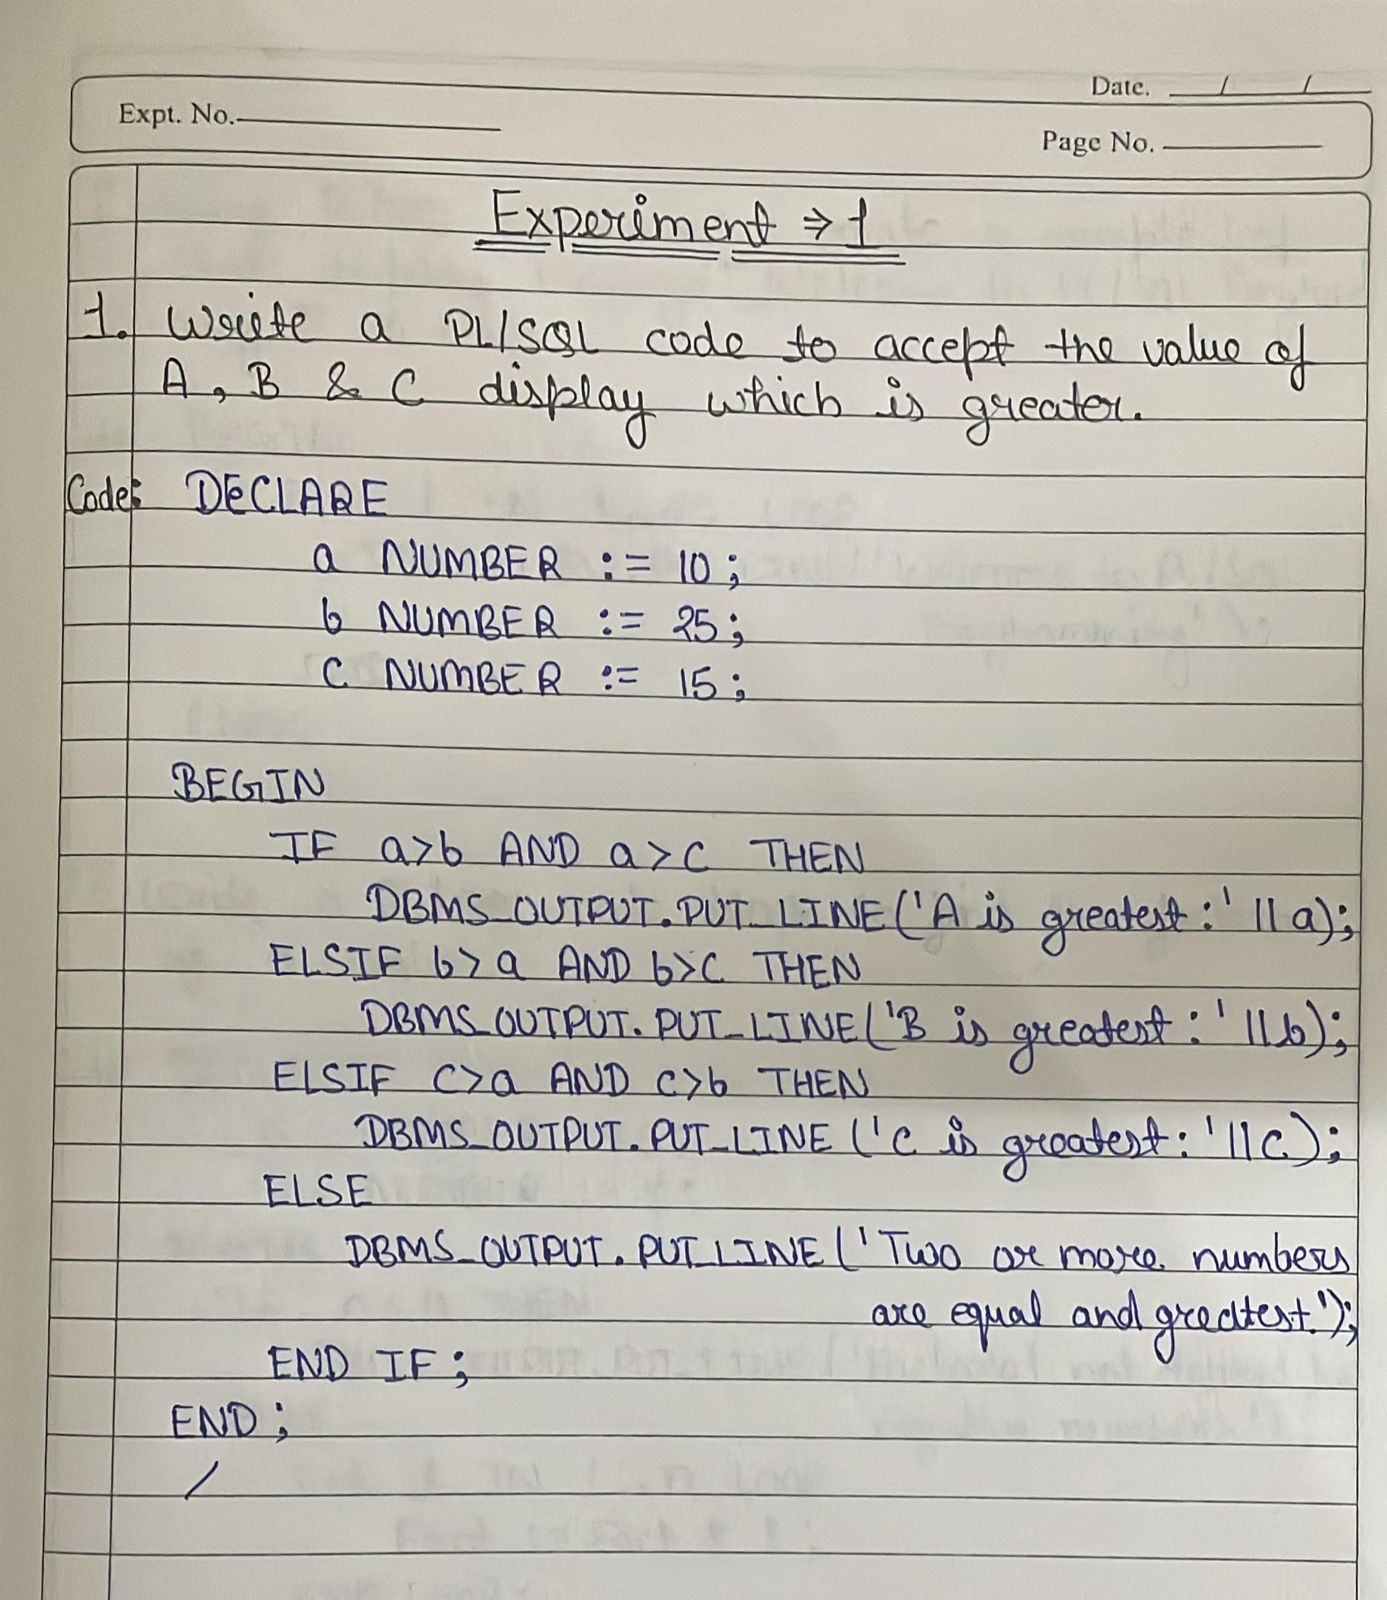 Date. / /
Expt. No.
Page No.
Experiment → 1
1. Write a PL/SQL code to accept the value of
A, B & C display which is greater.
Code: DECLARE
a NUMBER := 10;
b NUMBER := 25;
c NUMBER := 15;
BEGIN
IF a>b AND a>c THEN
DBMS_OUTPUT.PUT_LINE('A is greatest:' || a);
ELSIF b>a AND b>c THEN
DBMS_OUTPUT.PUT_LINE('B is greatest:' || b);
ELSIF c>a AND c>b THEN
DBMS_OUTPUT.PUT_LINE('C is greatest:' || c);
ELSE
DBMS_OUTPUT.PUT_LINE('Two or more numbers
are equal and greatest.');
END IF;
END;
/